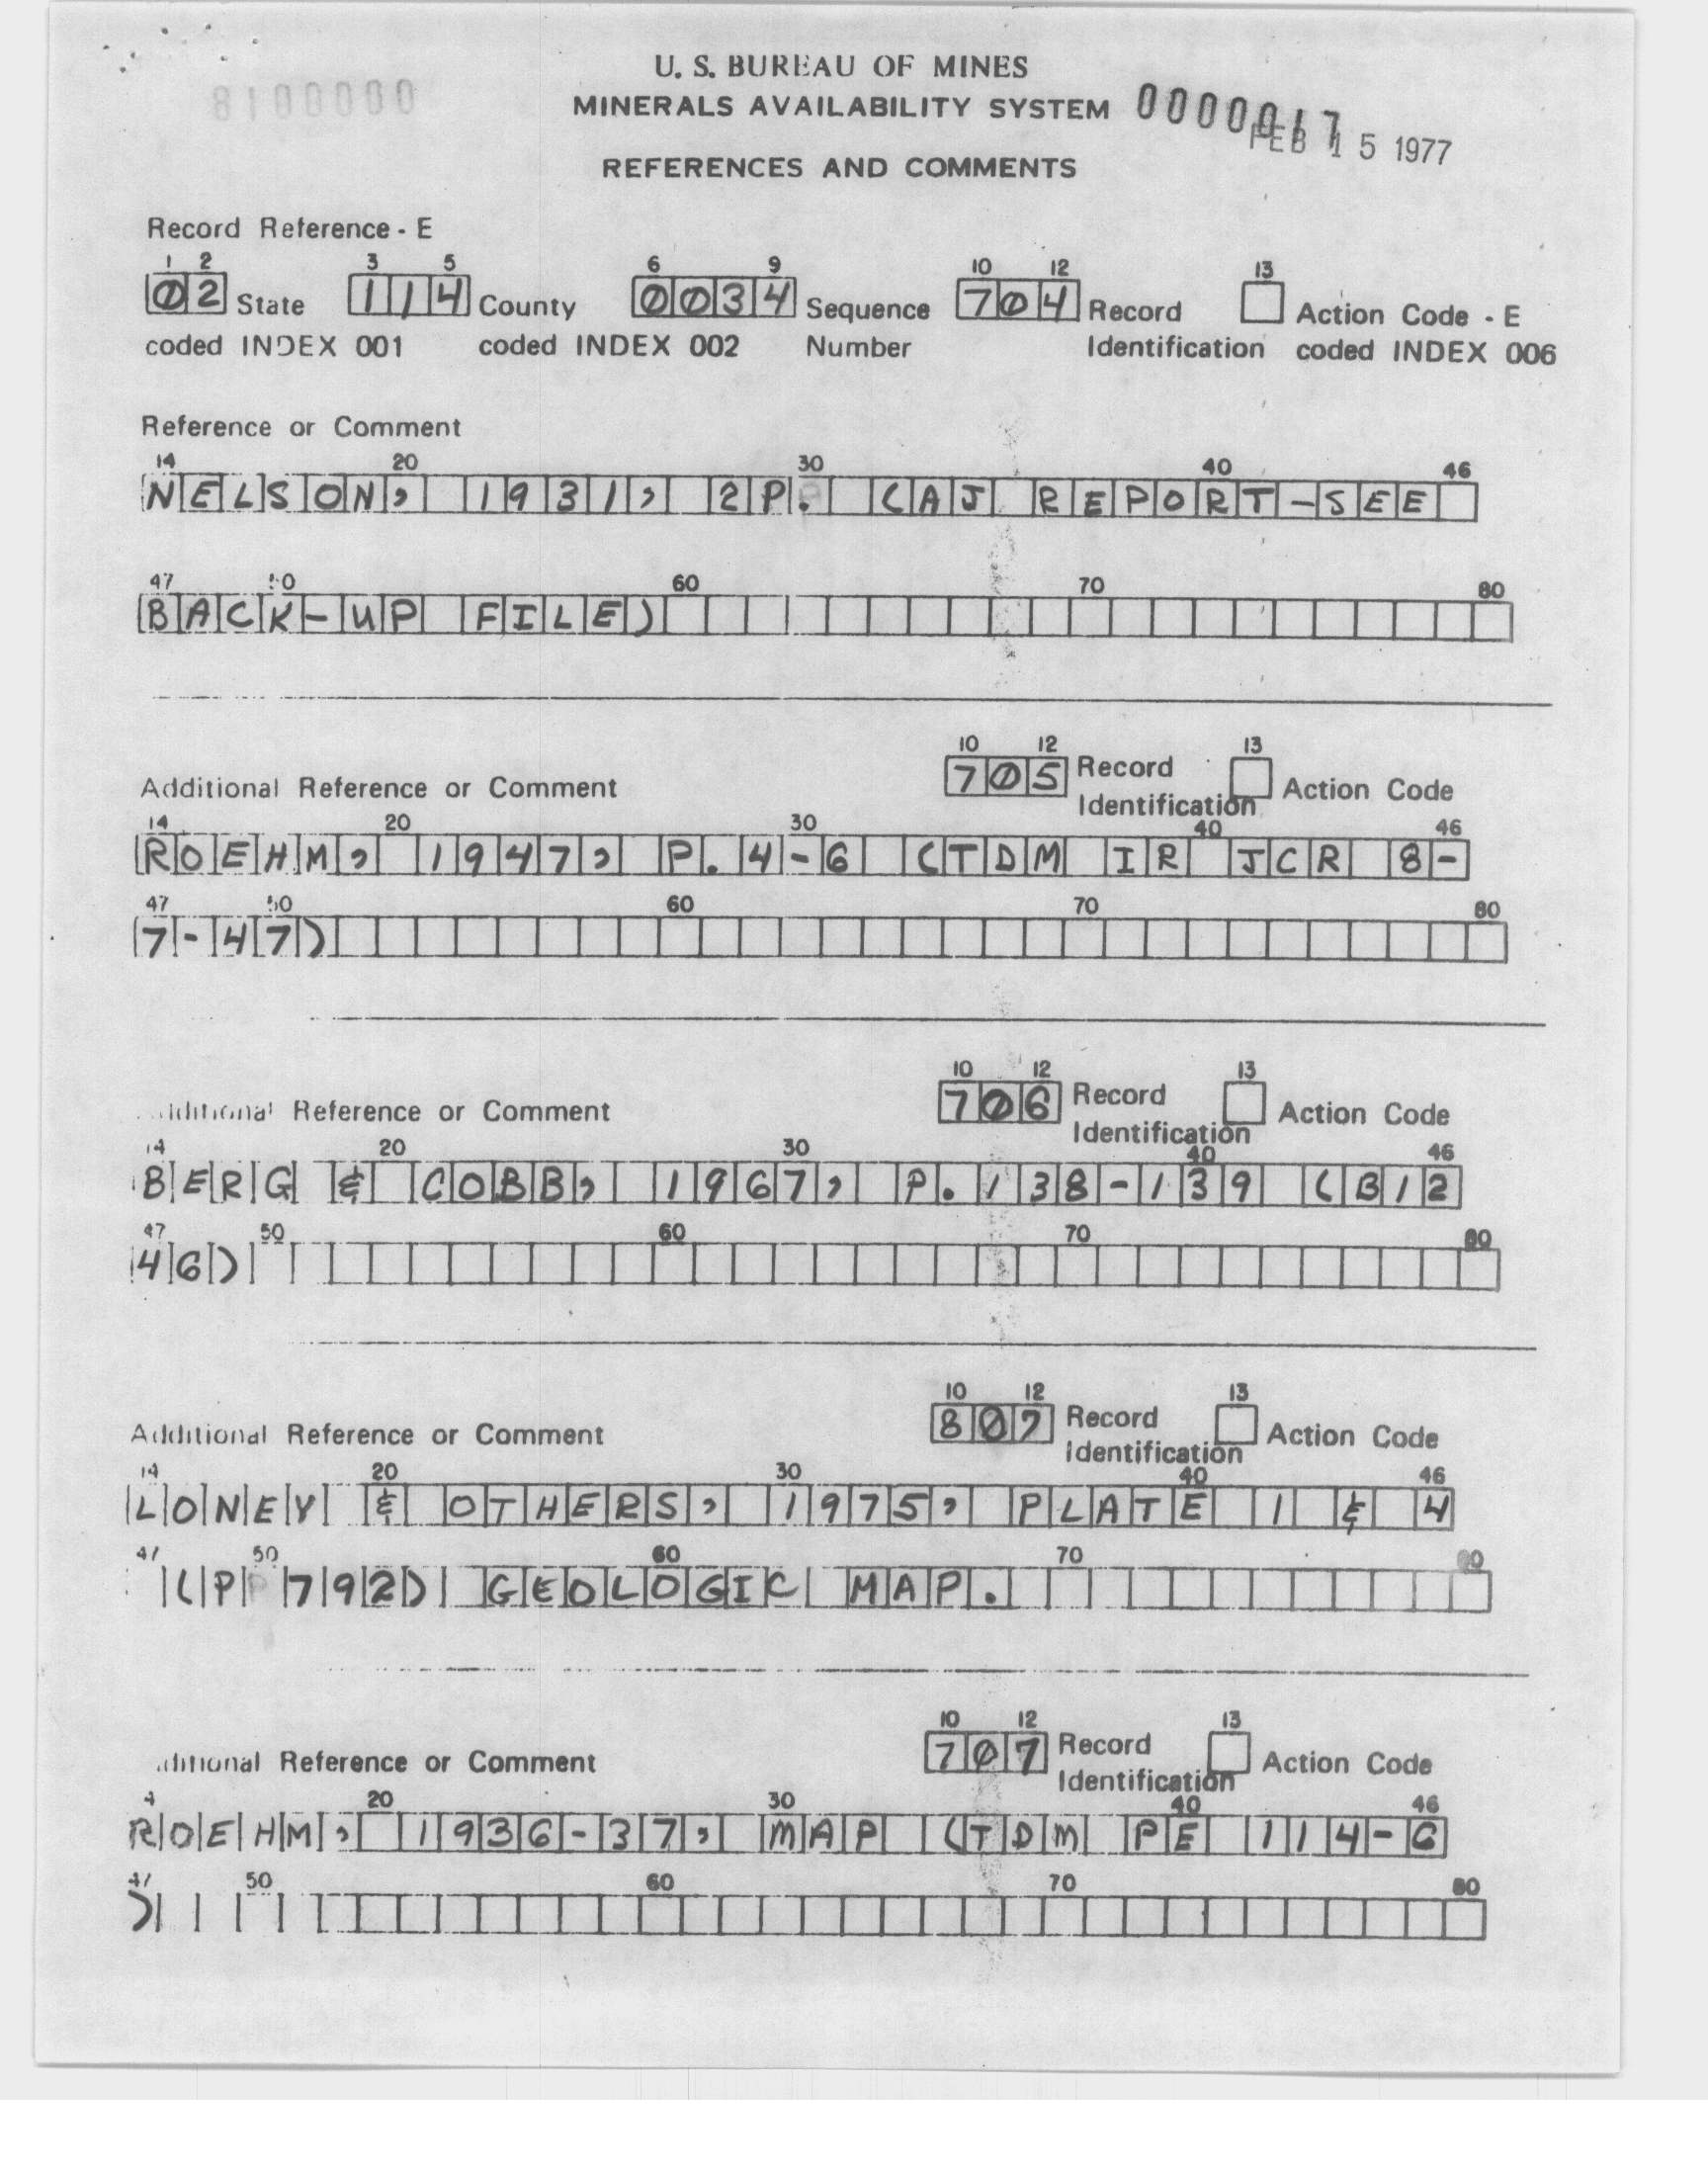 U. S. BUREAU OF MINES
8100000
MINERALS AVAILABILITY SYSTEM 0000017
FEB 15 1977
REFERENCES AND COMMENTS
Record Reference - E
1 2 3 5 6 9 10 12 13
02 State 114 County 0034 Sequence 704 Record Action Code - E
coded INDEX 001 coded INDEX 002 Number Identification coded INDEX 006
Reference or Comment
14 20 30 40 46
NELSON, 1931, 2P. (AJ REPORT-SEE
47 50 60 70 80
BACK-UP FILE)
10 12 13
705 Record
Additional Reference or Comment Identification Action Code
14 20 30 40 46
ROEHM, 1947, P. 4-6 (TDM IR JCR 8-
47 50 60 70 80
7-47)
10 12 13
706 Record
Additional Reference or Comment Identification Action Code
14 20 30 40 46
BERG & COBB, 1967, P. 138-139 (B12
47 50 60 70 80
46)
10 12 13
807 Record
Additional Reference or Comment Identification Action Code
14 20 30 40 46
LONEY & OTHERS, 1975, PLATE 1 & 4
47 50 60 70 80
(PP 792) GEOLOGIC MAP.
10 12 13
707 Record
ditional Reference or Comment Identification Action Code
4 20 30 40 46
ROEHM, 1936-37, MAP (TDM PE 114-6
47 50 60 70 80
)